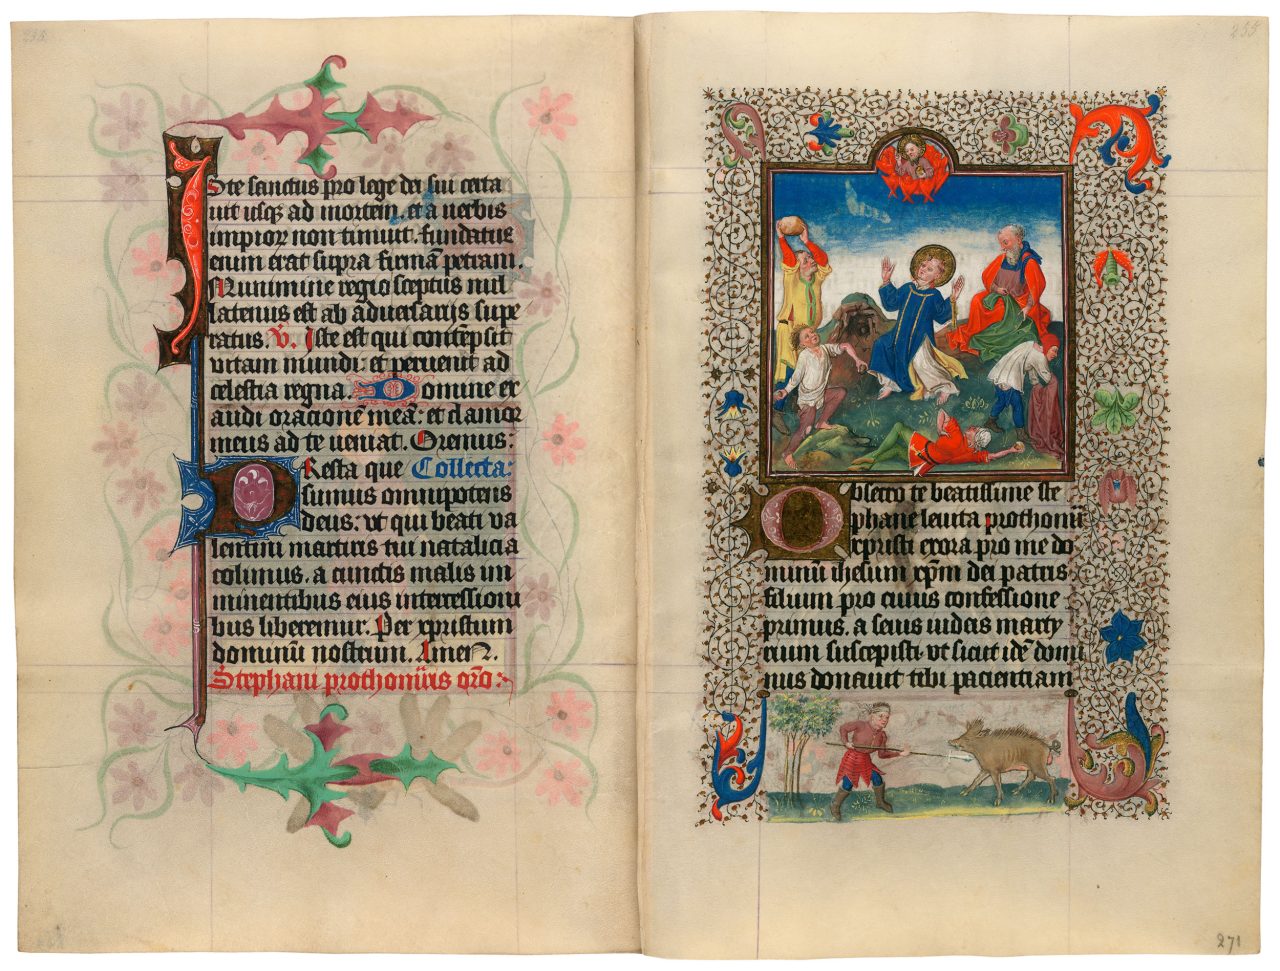 Iste sanctus pro lege dei sui certa
uit usq; ad mortem. et a uerbis
impior non timuit. fundatus
enim erat supra firmā petram.
Munimine regio septus nul
latenus est ab aduersarijs supe
ratus. V. Iste est qui contēpsit
vitam mundi: et peruenit ad
celestia regna. Domine ex
audi orationē meā: et clamor
meus ad te ueniat. Oremus:
Presta que Collecta:
sumus omnipotens
deus: vt qui beati va
lentini martiris tui natalicia
colimus. a cunctis malis im
minentibus eius intercessioni
bus liberemur. Per xpristum
dominū nostrum. Amen.
Stephani prothom̄ris orō:
255
Obsecro te beatissime ste
phane leuita prothom̄
r xpristi exora pro me do
minū ihesum xp̄m dei patris
filium pro cuius confessione
primus. a seuis iudeis marty
rium suscepisti. vt sicut idē domi
nus donauit tibi pacientiam
271